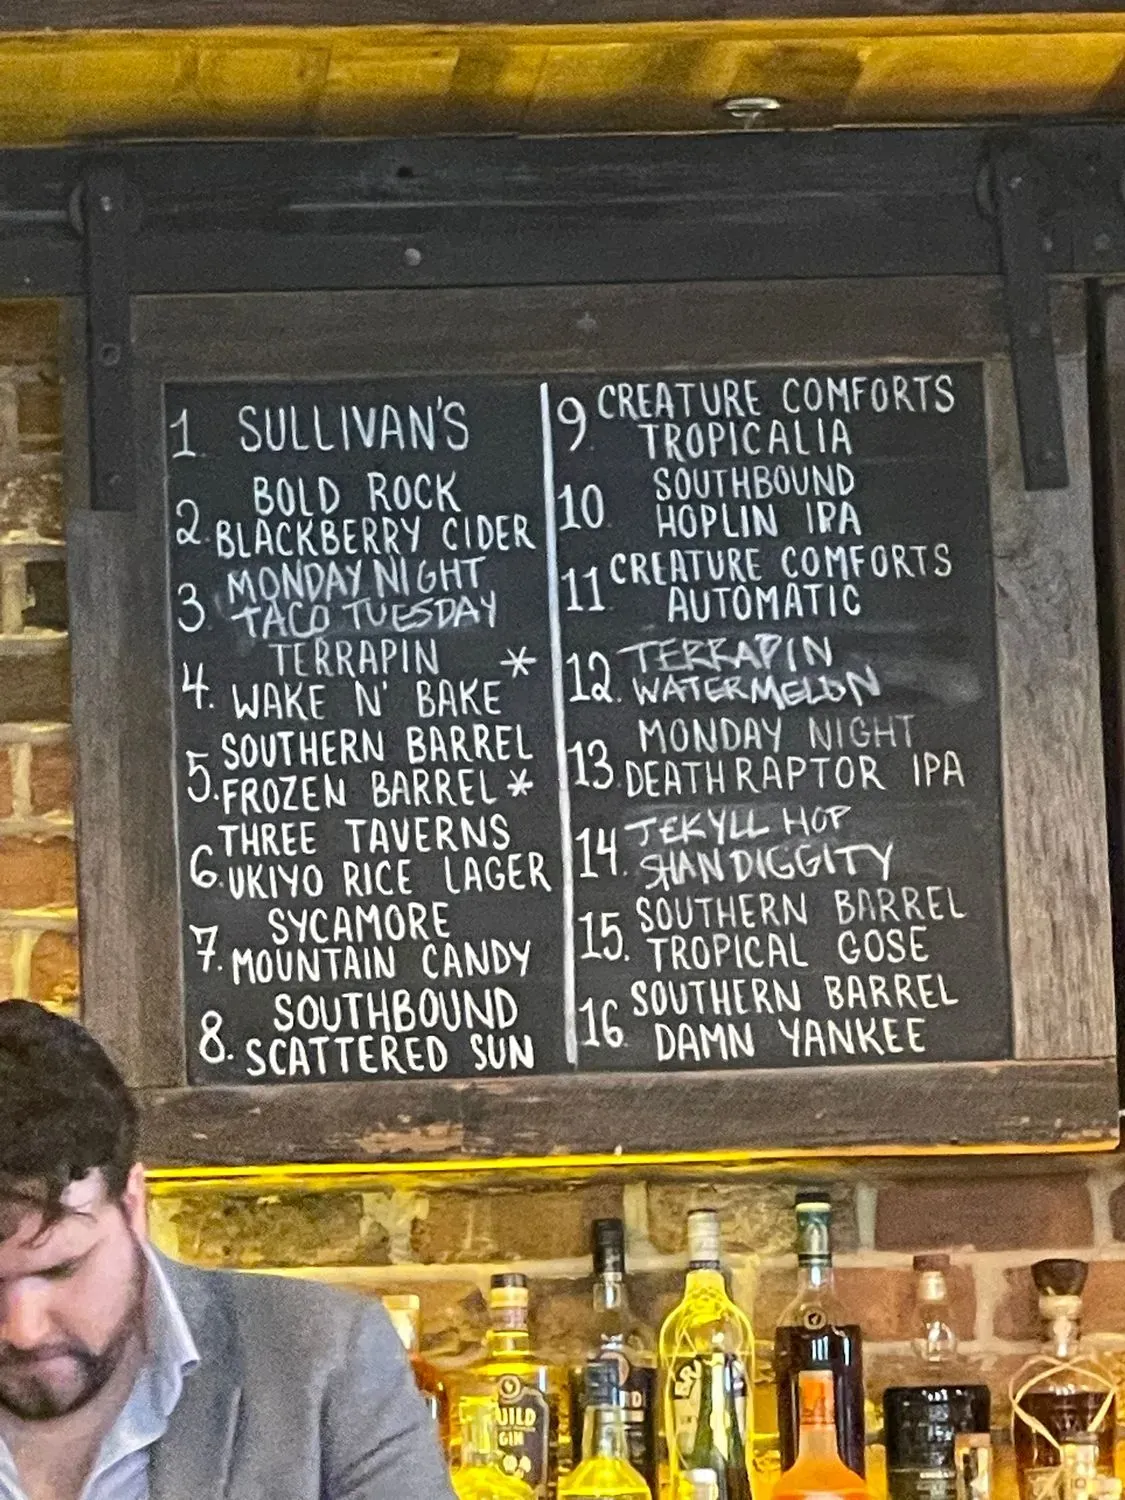 1. SULLIVAN'S
BOLD ROCK
2. BLACKBERRY CIDER
MONDAY NIGHT
3. TACO TUESDAY
TERRAPIN *
4. WAKE N' BAKE
SOUTHERN BARREL
5. FROZEN BARREL *
THREE TAVERNS
6. UKIYO RICE LAGER
SYCAMORE
7. MOUNTAIN CANDY
SOUTHBOUND
8. SCATTERED SUN
9. CREATURE COMFORTS
TROPICALIA
SOUTHBOUND
10. HOPLIN IPA
11. CREATURE COMFORTS
AUTOMATIC
TERRAPIN
12. WATERMELON
MONDAY NIGHT
13. DEATH RAPTOR IPA
JEKYLL HOP
14. SHAN DIGGITY
SOUTHERN BARREL
15. TROPICAL GOSE
SOUTHERN BARREL
16. DAMN YANKEE
GIN